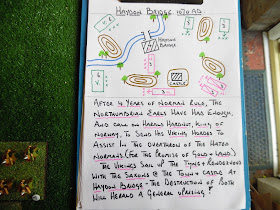 HAYDON BRIDGE 1070 AD.
HAYDON
BRIDGE
CASTLE
AFTER 4 YEARS OF NORMAN RULE, THE
NORTHUMBRIAN EARLS HAVE HAD ENOUGH,
AND CALL ON HARALD HARDNUT, KING OF
NORWAY, TO SEND HIS VIKING HORDES TO
ASSIST IN THE OVERTHROW OF THE HATED
NORMANS (FOR THE PROMISE OF GOLD + LAND).
THE VIKINGS SAIL UP THE TYNE & RENDEZVOUS
WITH THE SAXONS @ THE TOWN & CASTLE AT
HAYDON BRIDGE - THE DESTRUCTION OF BOTH
WILL HERALD A GENERAL UPRISING!